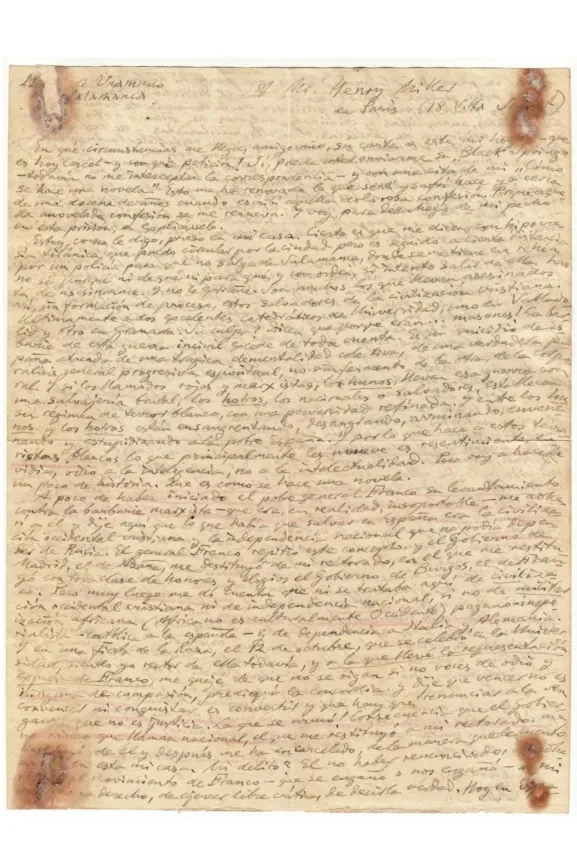 Unamuno
Salamanca
A Mr. Henry Miller
en París (18. Villa
En qué circunstancias me llega, amigo mío, su carta a este mi
es hoy carcel - y con qué petición! Sí, puede usted enviarme su "Black Spring"
- todavía no me interceptan la correspondencia - y con una cita de mi "Cómo
se hace una novela". Esto me ha renovado lo que sentí y sufrí hace ya cerca
de una docena de años cuando escribí aquella dolorosa confesión.
da novelada confesión se me renueva. Y voy, para desahogo de mi pecho
en esta prisión, a
Estoy, como le digo, preso en mi casa. Cierto es que me dicen, con hipocre
sía, que puedo circular por la ciudad pero es seguido a cierta distancia
por un policía para que no salga de Salamanca, donde se me tiene en rehén
no sé por qué ni de qué ni para qué, y con orden, si intento salir de ella,
de asesinarme. Y no le extrañe. Son muchos los que llevan asesinados
sin formación de proceso, estos salvadores de la civilización cristiana.
Últimamente a dos excelentes catedráticos de Universidad, uno en Vallado
lid y otro en Granada. Su culpa? Dicen que porque eran... masones! La bar
barie de esta guerra incivil excede de toda cuenta. Es un suicidio de
paña atacada de una trágica dementalidad colectiva, de una verdadera pa
rálisis general progresiva espiritual, no
ral. Y si los llamados rojos y marxistas, los hunos, llevan esa guerra con
una salvajería brutal, los hotros, los nacionales o salvadores, esta llevan
su régimen de terror blanco, con una perversidad refinada. Y entre los hu
nos y los hotros están ensangrentando, desangrando, arruinando, envene
nando y estupidizando a la pobre España. Y por lo que hace a estos terro
ristas blancos lo que principalmente les mueve es resentimiento, en
vidia, odio a la inteligencia, no a la intelectualidad. Pero voy a hacerle
un poco de historia. Que es como se hace una novela.
A poco de haber iniciado el pobre general Franco su levantamiento
contra la barbarie marxista - que era, en realidad, insoportable - me adhe
rí a él y dije aquí que lo que había que salvar en España era la civiliza
ción occidental cristiana y la independencia nacional que no podía depen
der de Rusia. El general Franco repitió este concepto. Y el Gobierno de
Madrid, el de Azaña, me destituyó de mi rectorado, en el que me restitu
yó con toda clase de honores y elogios el Gobierno de Burgos, el de Fran
co. Pero muy luego me dí cuenta que ni se trataba aquí de civiliza
ción occidental cristiana ni de independencia nacional, si no de militar
ización africana (África no es culturalmente Occidente) pagano-impe
rialista - católica a la española - y de dependencia a Italia y Alemania.
Y en una fiesta de la Raza, el 12 de octubre, que se celebró en la Univer
sidad, siendo yo rector de ella todavía, y a la que llevé la representación
de Franco, me quejé de que no se oigan si no voces de odio y
ninguna de compasión, prediqué la concordia y dije que vencer no es
convencer ni conquistar es convertir y que hay que renunciar a la ven
ganza que no es justicia. La que se armó! Consecuencia que el Gobier
no que llaman nacional, el que me restituyó a mi rectorado, me
de él y después me ha encarcelado, de la manera que le cuento,
en esta mi casa. Mi delito? El no haber renunciado,
movimiento de Franco - que se engañó o nos engañó - a mi
derecho, de ejercer libre crítica, de decirle verdad. Hoy en